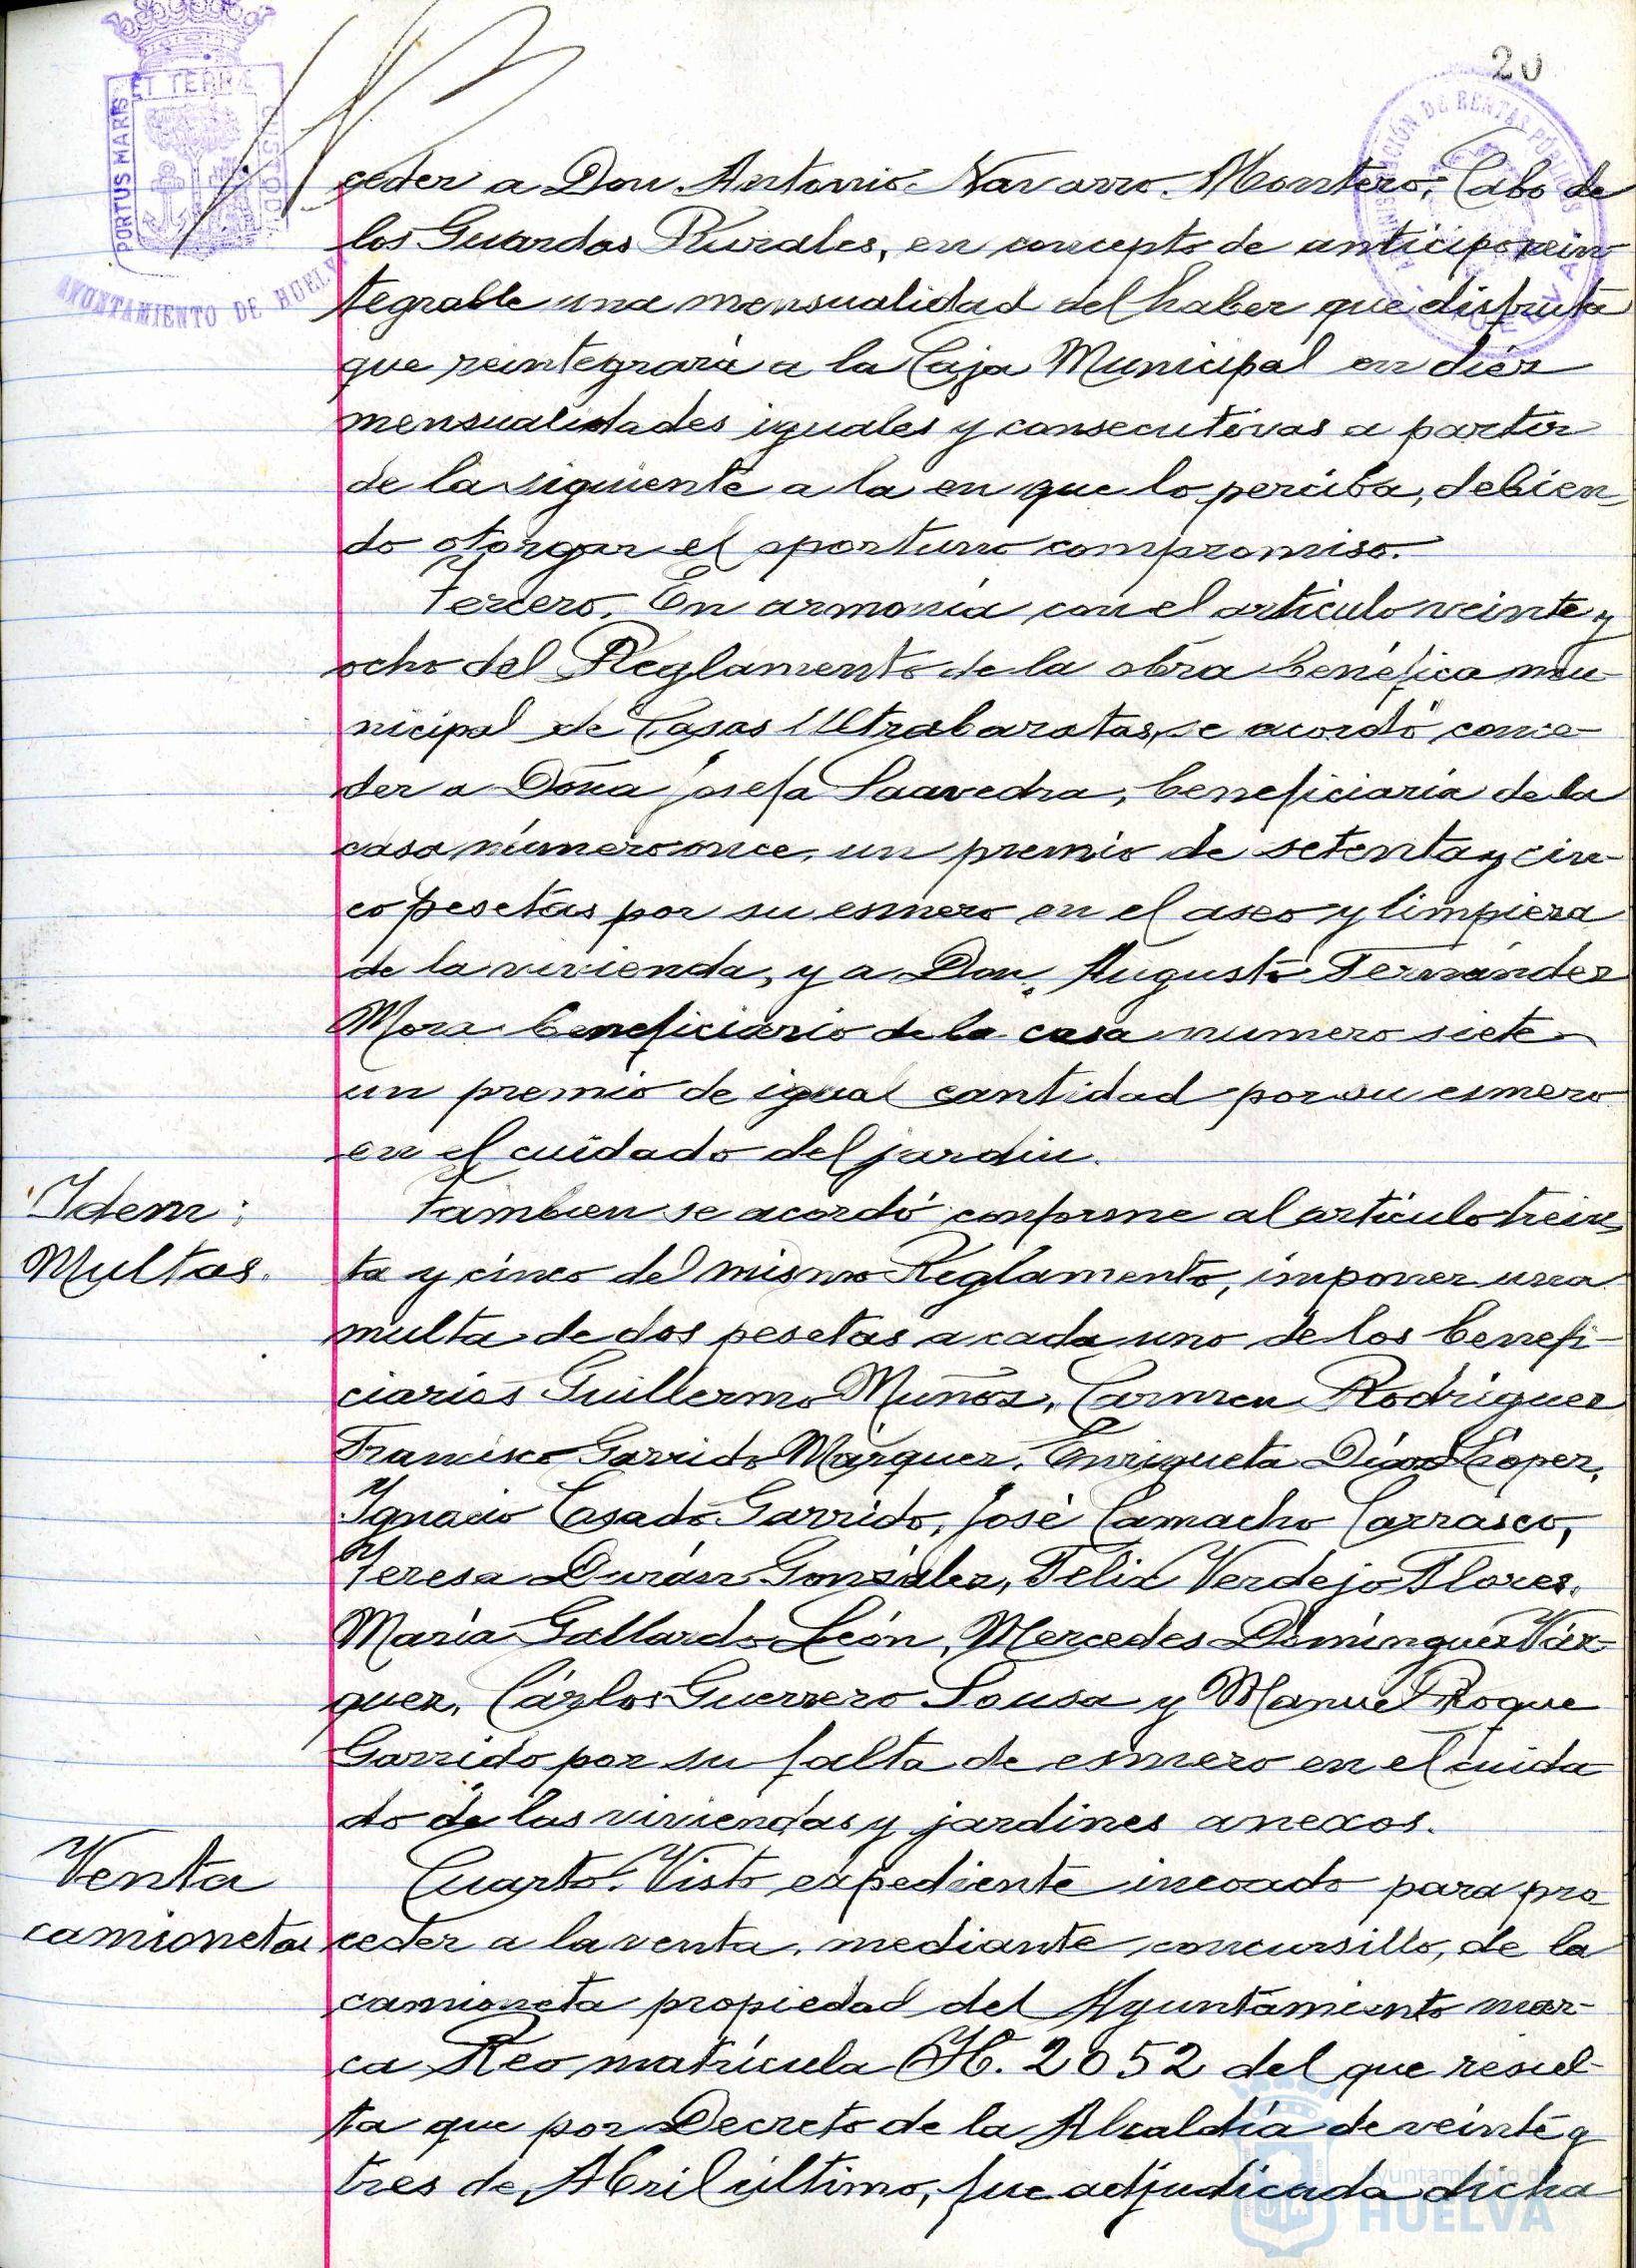 20
PORTUS MARIS ET TERRÆ CUSTODIA
AYUNTAMIENTO DE HUELVA
ADMINISTRACIÓN DE RENTAS PÚBLICAS
HUELVA
ceder a Don Antonio Navarro Montero, Cabo de
los Guardas Rurales, en concepto de anticipo rein
tegrable una mensualidad del haber que disfruta
que reintegrará a la Caja Municipal en diéz
mensualidades iguales y consecutivas a partir
de la siguiente a la en que lo perciba, debien
do otorgar el oportuno compromiso.
Tercero. En armonía con el artículo veinte y
ocho del Reglamento de la obra benéfica mu-
nicipal de Casas Ultrabaratas, se acordó conce-
der a Doña Josefa Saavedra, beneficiaria de la
casa número once, un premio de setenta y cin-
co pesetas por su esmero en el aseo y limpieza
de la vivienda, y a Don Augusto Fernández
Mora beneficiario de la casa numero siete
un premio de igual cantidad por su esmero
en el cuidado del jardin.
Idem:
Multas.
Tambien se acordó conforme al artículo trein
ta y cinco del mismo Reglamento, imponer una
multa de dos pesetas a cada uno de los benefi-
ciarios Guillermo Muñoz, Carmen Rodríguez
Francisco Garrido Márquez, Enriqueta Díaz López,
Ignacio Casado Garrido, José Camacho Carrasco,
Teresa Durán González, Félix Verdejo Flores,
María Gallardo León, Mercedes Domínguez Váz-
quez, Cárlos Guerrero Sousa y Manuel Roque
Garrido por su falta de esmero en el cuida
do de las viviendas y jardines anexos.
Venta
camionetas
Cuarto. Visto expediente incoado para pro
ceder a la venta, mediante concursillo, de la
camioneta propiedad del Ayuntamiento mar-
ca Reo matrícula H. 2052 del que resul-
ta que por Decreto de la Alcaldía de veinte y
tres de Abril último, fue adjudicada dicha
Ayuntamiento de
HUELVA